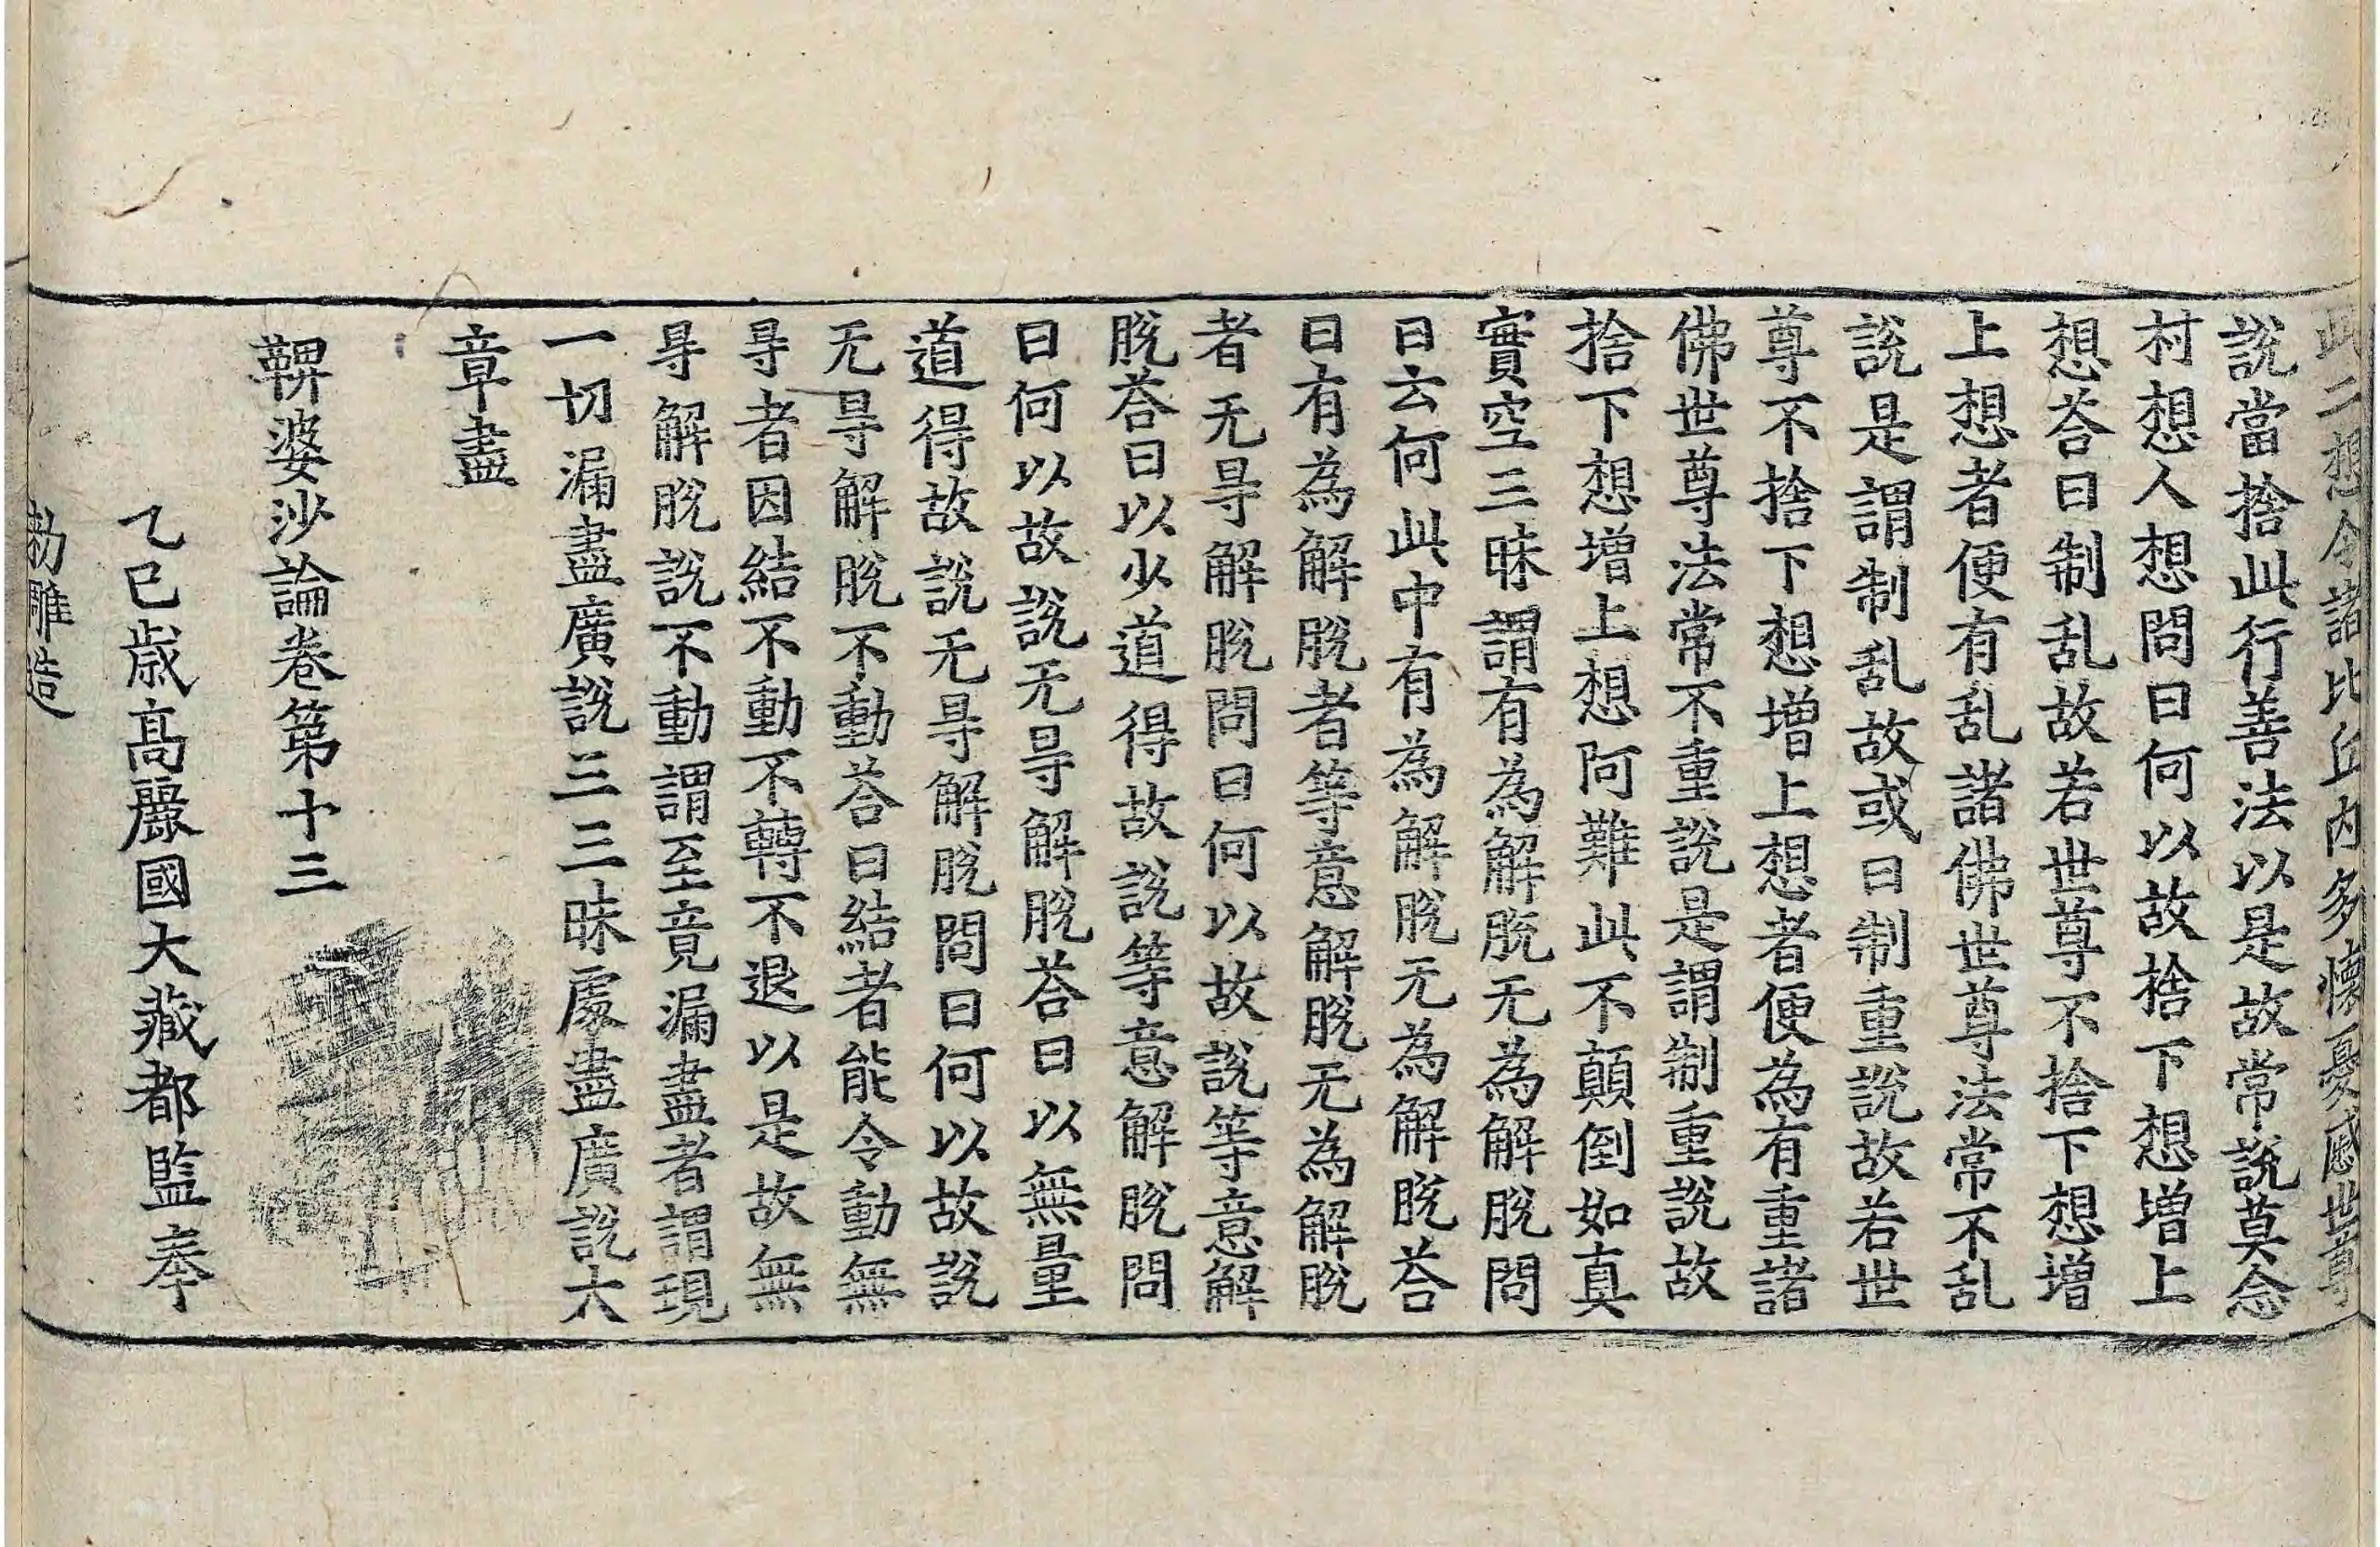 此二想令諸比丘内多懷憂慼世尊
說當捨此行善法以是故常說莫念
村想人想問曰何以故捨下想增上
想荅曰制乱故若世尊不捨下想增
上想者便有乱諸佛世尊法常不乱
說是謂制乱故或曰制重說故若世
尊不捨下想增上想者便為有重諸
佛世尊法常不重說是謂制重說故
捨下想增上想阿難此不顛倒如真
實空三昧謂有為解脫无為解脫問
曰云何此中有為解脫无為解脫荅
曰有為解脫者等意解脫无為解脫
者无㝵解脫問曰何以故說等意解
脫荅曰以少道得故說等意解脫問
曰何以故說无㝵解脫荅曰以無量
道得故說无㝵解脫問曰何以故說
无㝵解脫不動荅曰結者能令動無
㝵者因結不動不轉不退以是故無
㝵解脫說不動謂至竟漏盡者謂現
一切漏盡廣說三三昧處盡廣說大
章盡
鞞婆沙論卷第十三
乙巳歲高麗國大藏都監奉
勅雕造